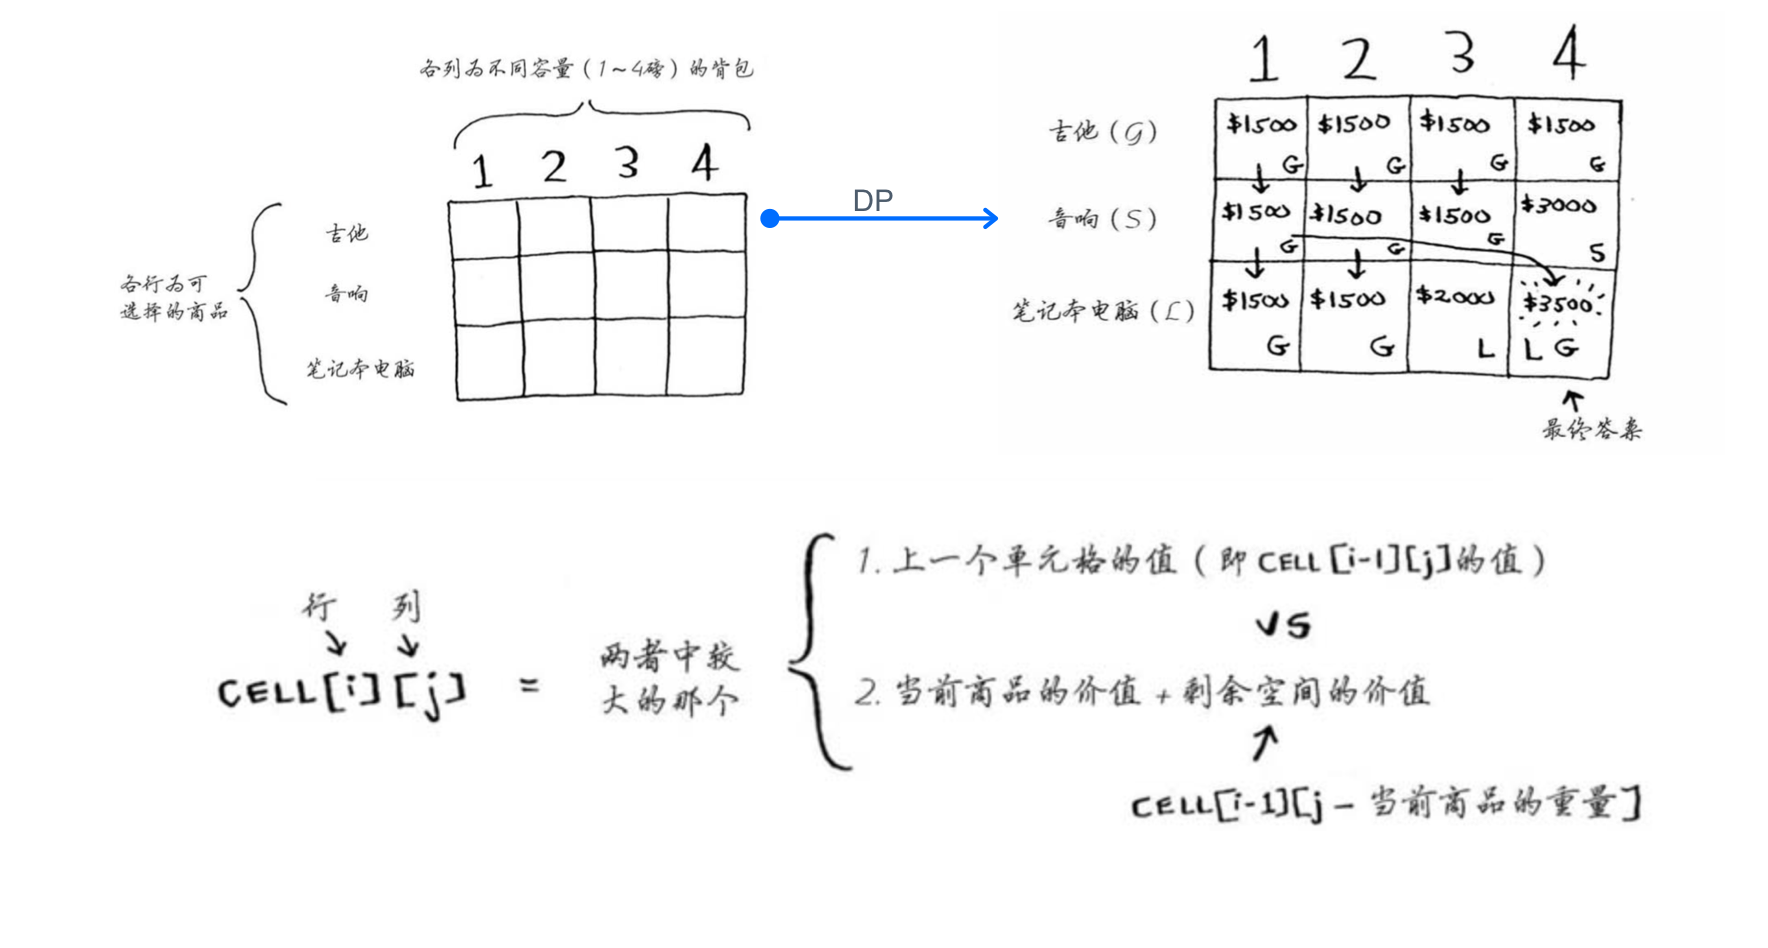 各列为不同容量(1~4磅)的背包
1 2 3 4
吉他
音响
笔记本电脑
各行为可
选择的商品
DP
1 2 3 4
吉他(G) $1500 G $1500 G $1500 G $1500 G
音响(S) $1500 G $1500 G $1500 G $3000 S
笔记本电脑(L) $1500 G $1500 G $2000 L $3500 L G
最终答案
行 列
CELL[i][j] = 两者中较
大的那个
1. 上一个单元格的值(即CELL[i-1][j]的值)
VS
2. 当前商品的价值+剩余空间的价值
CELL[i-1][j-当前商品的重量]